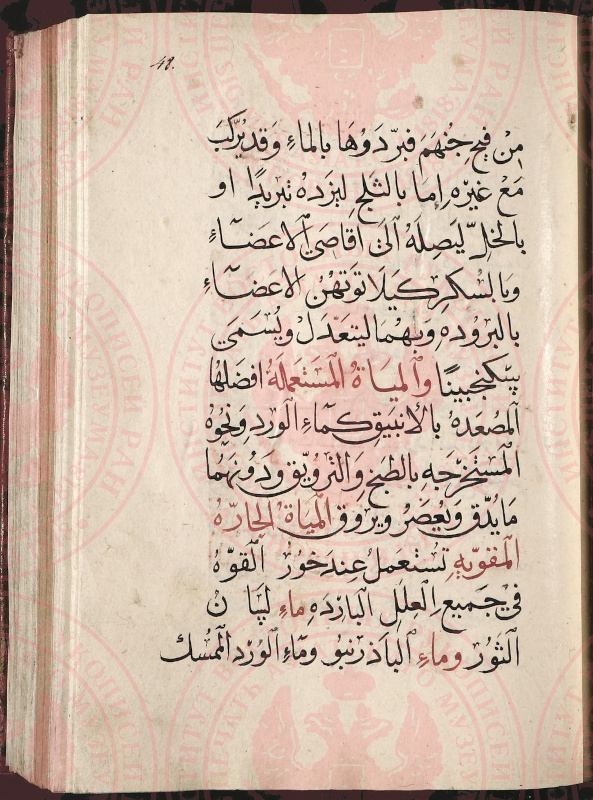 48.
من فيح جهنم فبردوها بالماء وقد يركب
مع غيره اما بالثلج ليزده تبريدا او
بالخل ليصله الى اقاصي الاعضاء
وبالسكر كيلا توتهن الاعضاء
بالبروده وبهما ليتعدل ويسمى
سكنجبينا والمياة المستعملة افضلها
المصعده بالانبيق كماء الورد ونحوه
المستخرجه بالطبخ والترويق ودونهما
ما يدق ويعصر ويروق المياة الحاره
المقويه تستعمل عند خور القوه
في جميع العلل البارده ماء لسان
الثور وماء الباذرنبو وماء الورد الممسك